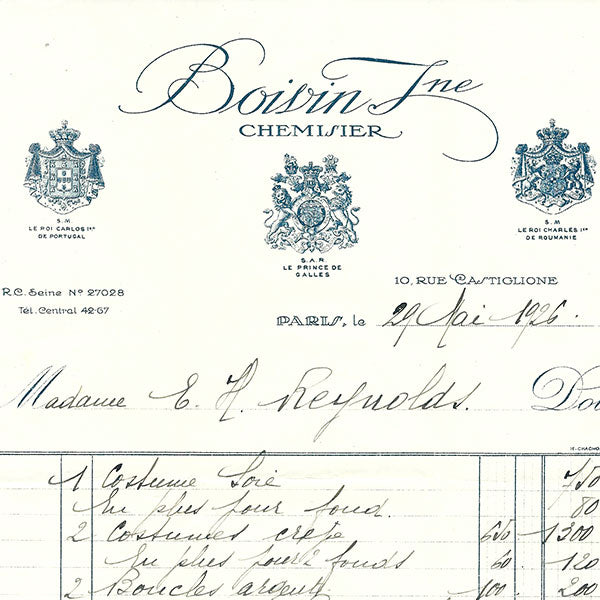 Boivin Jne
CHEMISIER
S. M.
LE ROI CARLOS Ier
DE PORTUGAL
S. A. R.
LE PRINCE DE
GALLES
S. M.
LE ROI CHARLES Ier
DE ROUMANIE
10, RUE CASTIGLIONE
R.C. Seine Nº 27028
Tél. Central 42-67
PARIS, le 29 Mai 1926.
Madame E. H. Reynolds. Doi
1 Costume Soie 750
En plus pour fond. 80
2 Costumes crêpe 650 1300
En plus pour 2 fonds 60 120
2 Boucles argent 100 200